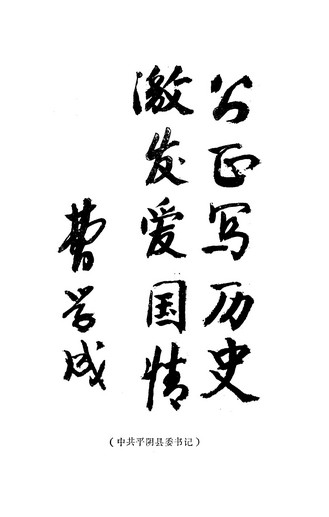 公正写历史
激发爱国情
曹学成
（中共平阴县委书记）